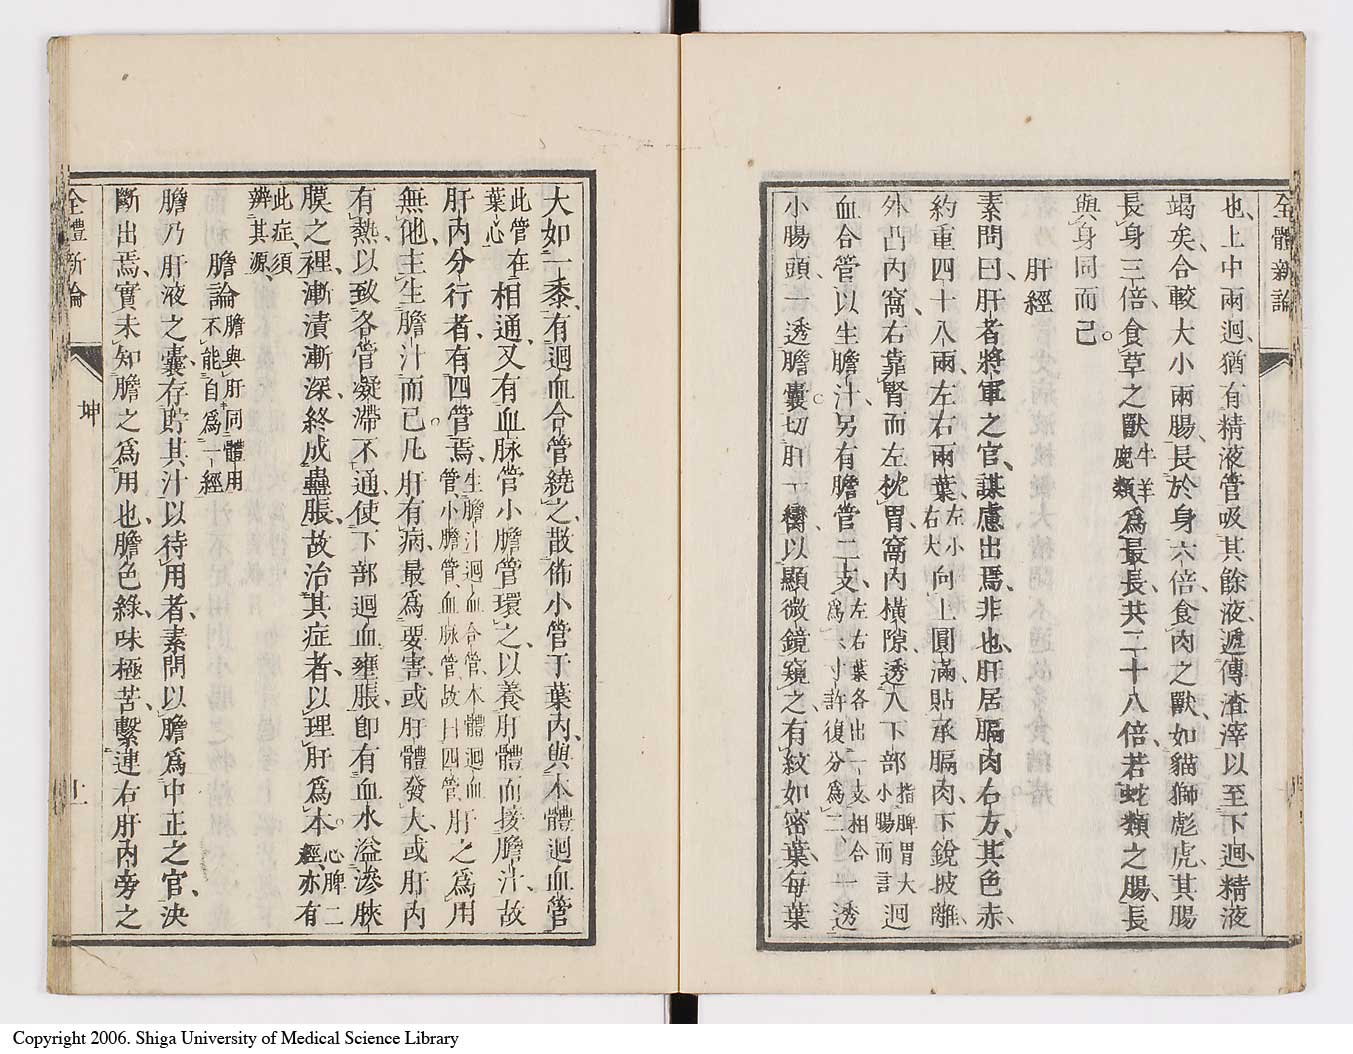 全體新論
也上中兩迴猶有精液管吸其餘液遞傳渣滓以至下迴精液
竭矣合較大小兩腸長於身六倍食肉之獸如貓獅彪虎其腸
長身三倍食草之獸牛羊鹿類爲最長共二十八倍若蛇類之腸長
與身同而已
肝經
素問曰肝者將軍之官謀慮出焉非也肝居膈肉右方其色赤
約重四十八兩左右兩葉左小右大向上圓滿貼承膈肉下銳披離
外凸內窩右靠腎而左枕胃窩內橫隙透入下部指脾胃大小腸而言迴
血合管以生膽汁另有膽管二支左右葉各出一支相合爲一寸許復分爲二一透
小腸頭一透膽囊切肝一臠以顯微鏡窺之有紋如密葉每葉
大如一黍有迴血合管繞之散佈小管于葉內與本體迴血管
此管在葉心相通又有血脉管小膽管環之以養肝體而接膽汁故
肝內分行者有四管焉生膽汁迴血合管本體迴血管小膽管血脉管故曰四管肝之爲用
無他主生膽汁而已凡肝有病最爲要害或肝體發大或肝內
有熱以致各管凝滯不通使下部迴血壅脹卽有血水溢滲脥
膜之裡漸漬漸深終成蠱脹故治其症者以理肝爲本心脾二經亦有
此症須辨其源
膽論膽與肝同體用不能自爲一經
膽乃肝液之囊存貯其汁以待用者素問以膽爲中正之官決
斷出焉實未知膽之爲用也膽色綠味極苦繫連右肝內旁之
全體新論
坤
Copyright 2006. Shiga University of Medical Science Library